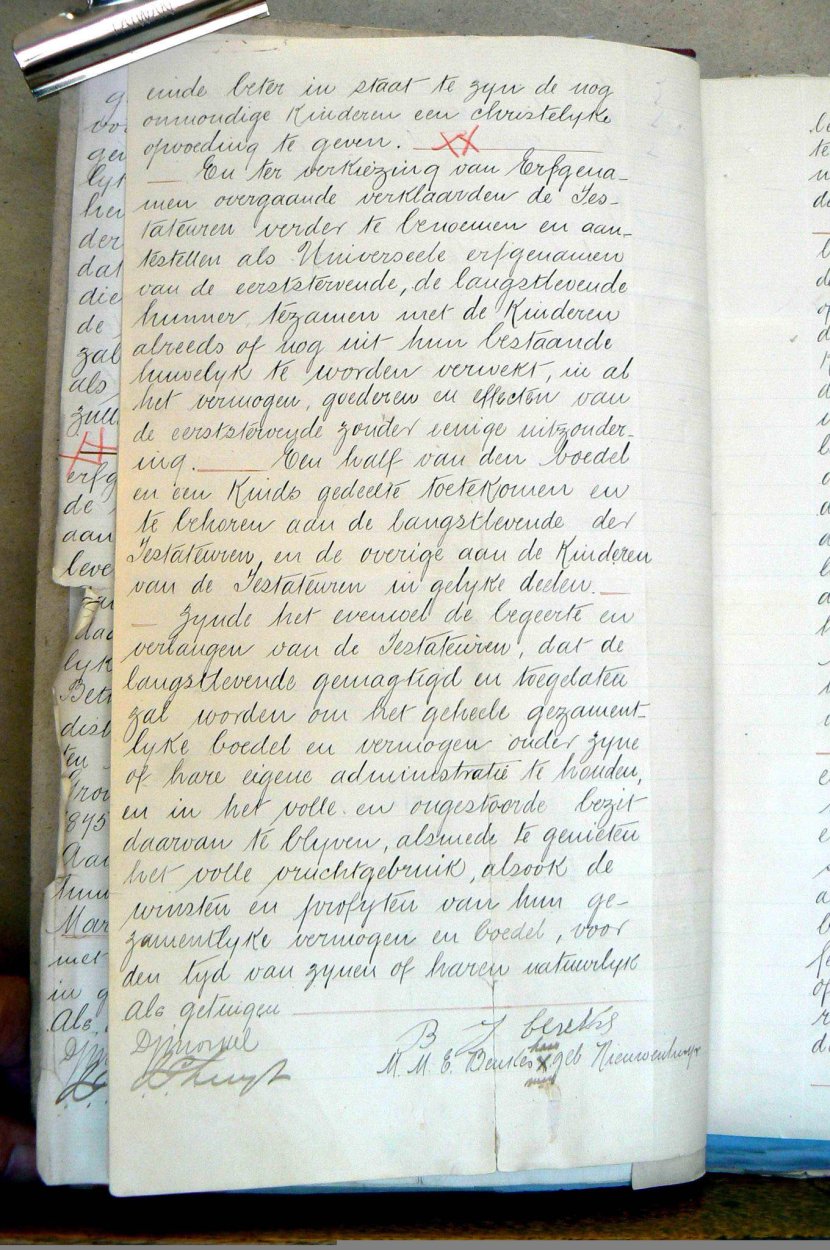 einde beter in staat te zyn de nog
onmondige Kinderen een christelyke
opvoeding te geven.
En ter verkiezing van Erfgena-
men overgaande verklaarden de Tes-
tateuren verder te benoemen en aan-
testellen als Universeele erfgenamen
van de eerststervende, de langstlevende
hunner tezamen met de Kinderen
alreeds of nog uit hun bestaande
huwelyk te worden verwekt, in al
het vermogen, goederen en effecten van
de eerststervende zonder eenige uitzonder-
ing. Een half van den boedel
en een Kinds gedeelte toetekomen en
te behoren aan de langstlevende der
Testateuren, en de overige aan de Kinderen
van de Testateuren in gelyke deelen.
Zynde het evenwel de begeerte en
verlangen van de Testateuren, dat de
langstlevende gemagtigd en toegelaten
zal worden om het geheele gezament-
lyke boedel en vermogen onder zyne
of hare eigene administratie te houden,
en in het volle en ongestoorde bezit
daarvan te blyven, alsmede te genieten
het volle vruchtgebruik, alsook de
winsten en profyten van hun ge-
zamentlyke vermogen en boedel, voor
den tyd van zynen of haren natuurlyk
Als getuigen
B J beukes
haar
M. M. E. Beukes X geb Nieuwenhuys
merk